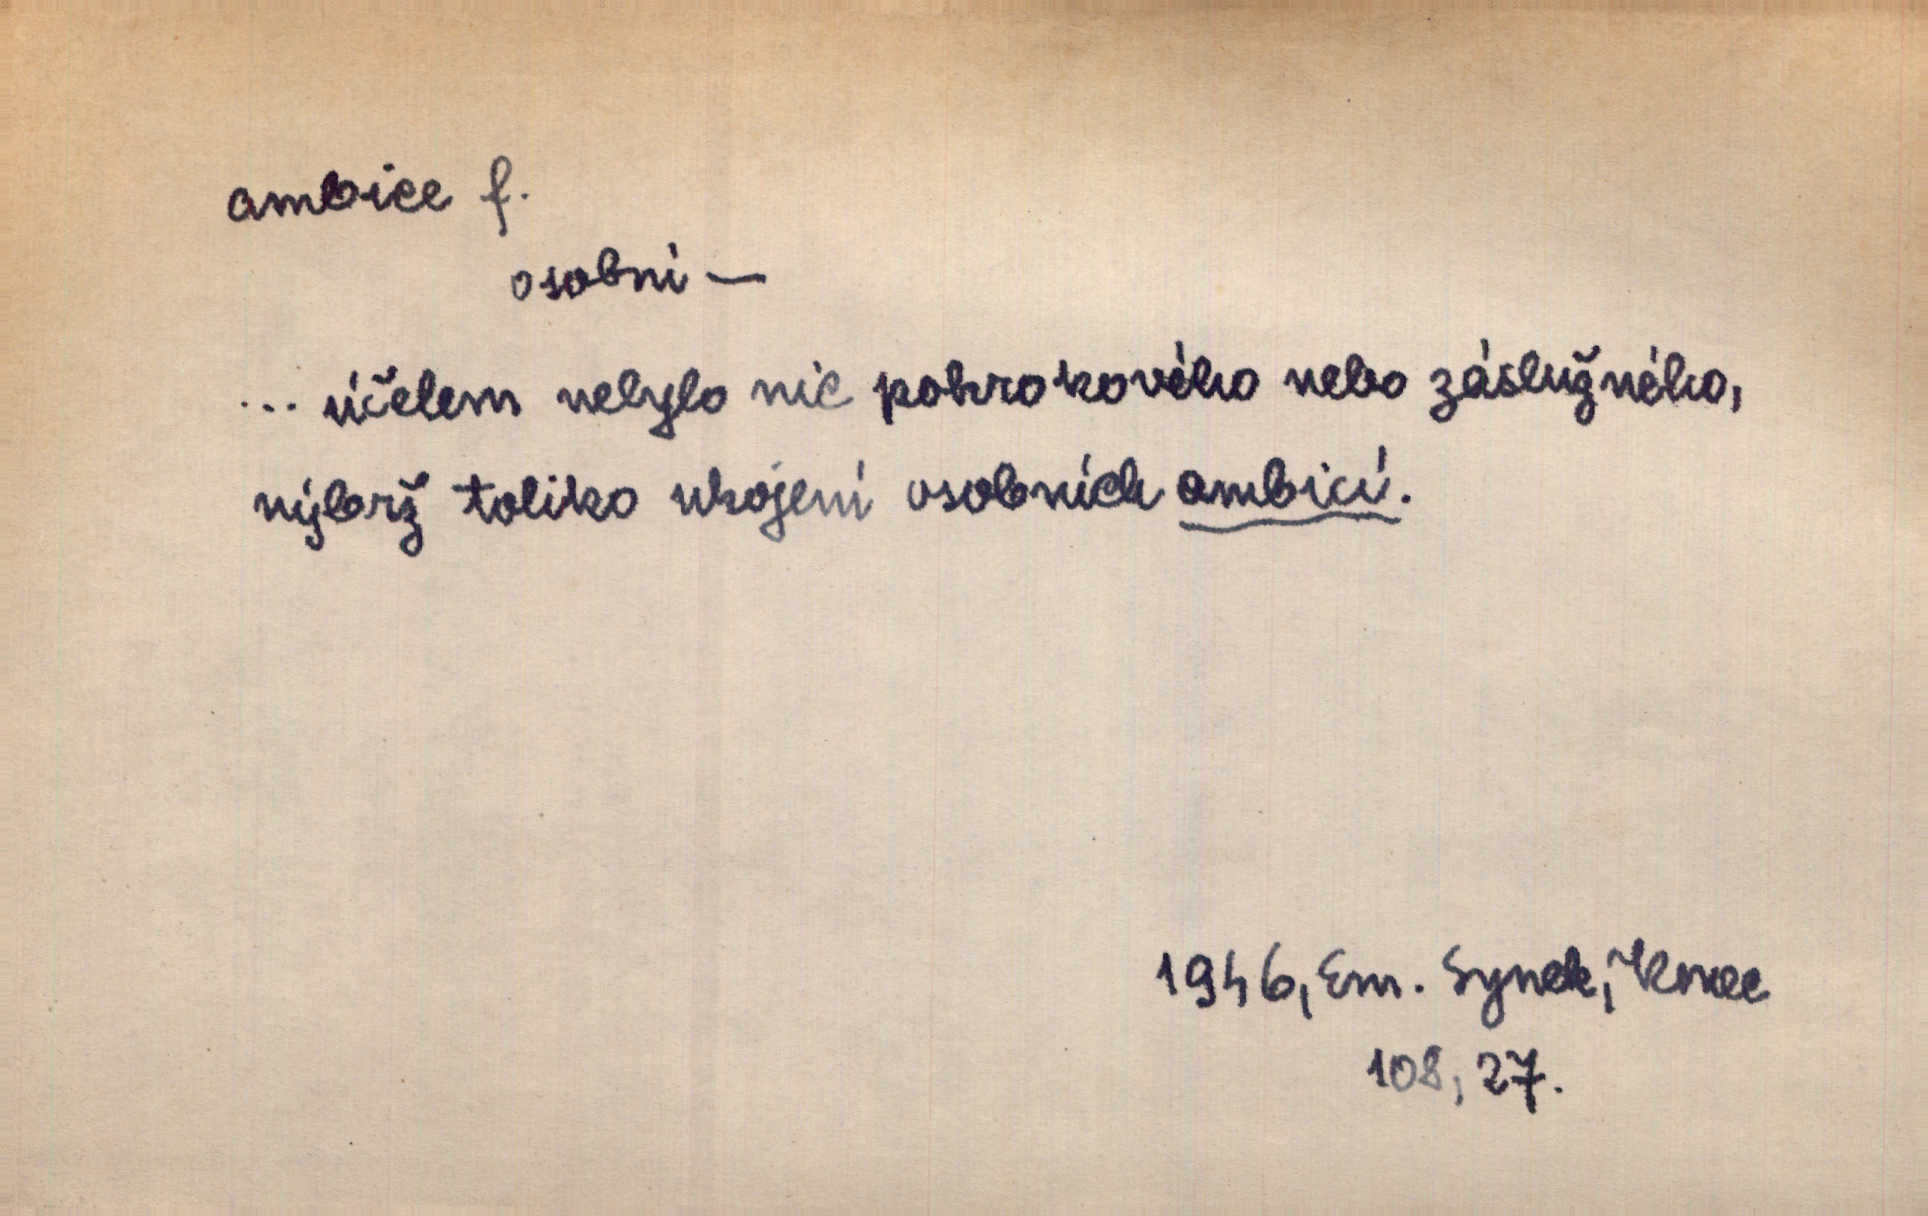 ambice f.
osobní —
... účelem nebylo nic pokrokového nebo záslužného,
nýbrž toliko ukojení osobních ambicí.
1946, Em. Synek,
108, 27.